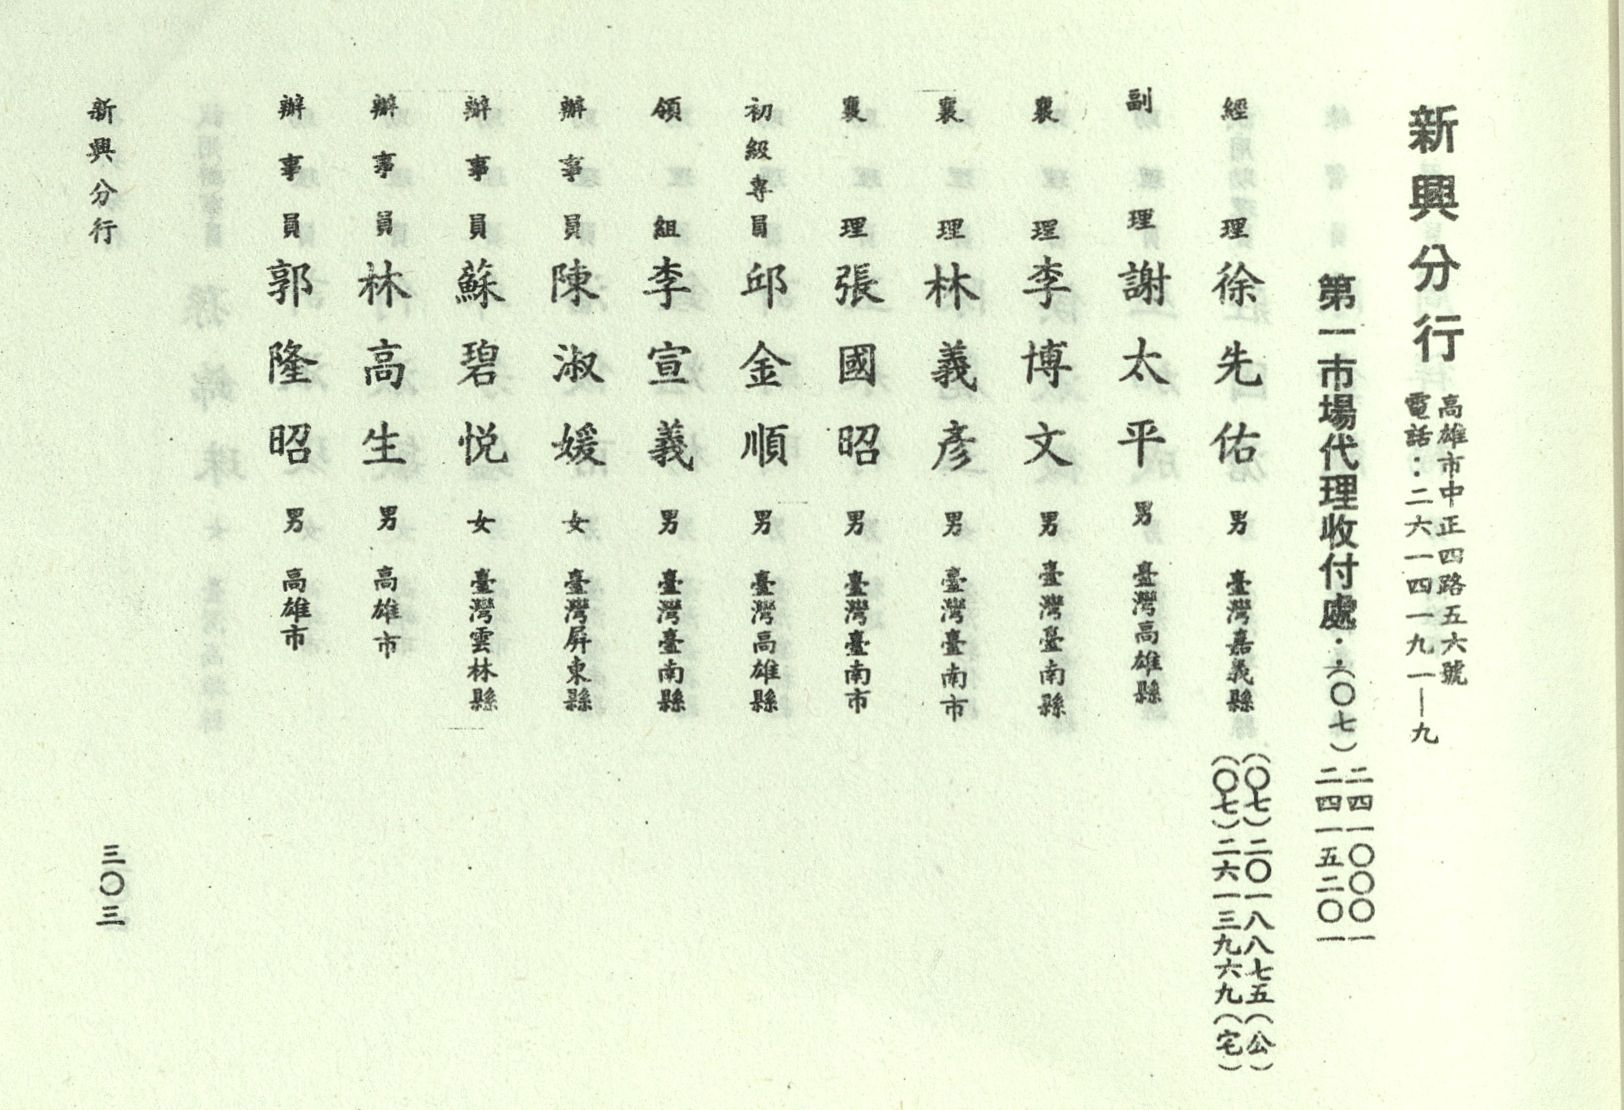 新興分行
高雄市中正四路五六號
電話：二六一四一九一—九
第一市場代理收付處：（〇七）
二四一〇〇〇一
二四一五二〇一
經理 徐先佑 男 臺灣嘉義縣
（〇七）二〇一八八七五（公）
（〇七）二六一三九六九（宅）
副理 謝太平 男 臺灣高雄縣
襄理 李博文 男 臺灣臺南縣
襄理 林義彥 男 臺灣臺南市
襄理 張國昭 男 臺灣臺南市
初級專員 邱金順 男 臺灣高雄縣
領組 李宣義 男 臺灣臺南縣
辦事員 陳淑媛 女 臺灣屏東縣
辦事員 蘇碧悅 女 臺灣雲林縣
辦事員 林高生 男 高雄市
辦事員 郭隆昭 男 高雄市
新興分行
三〇三